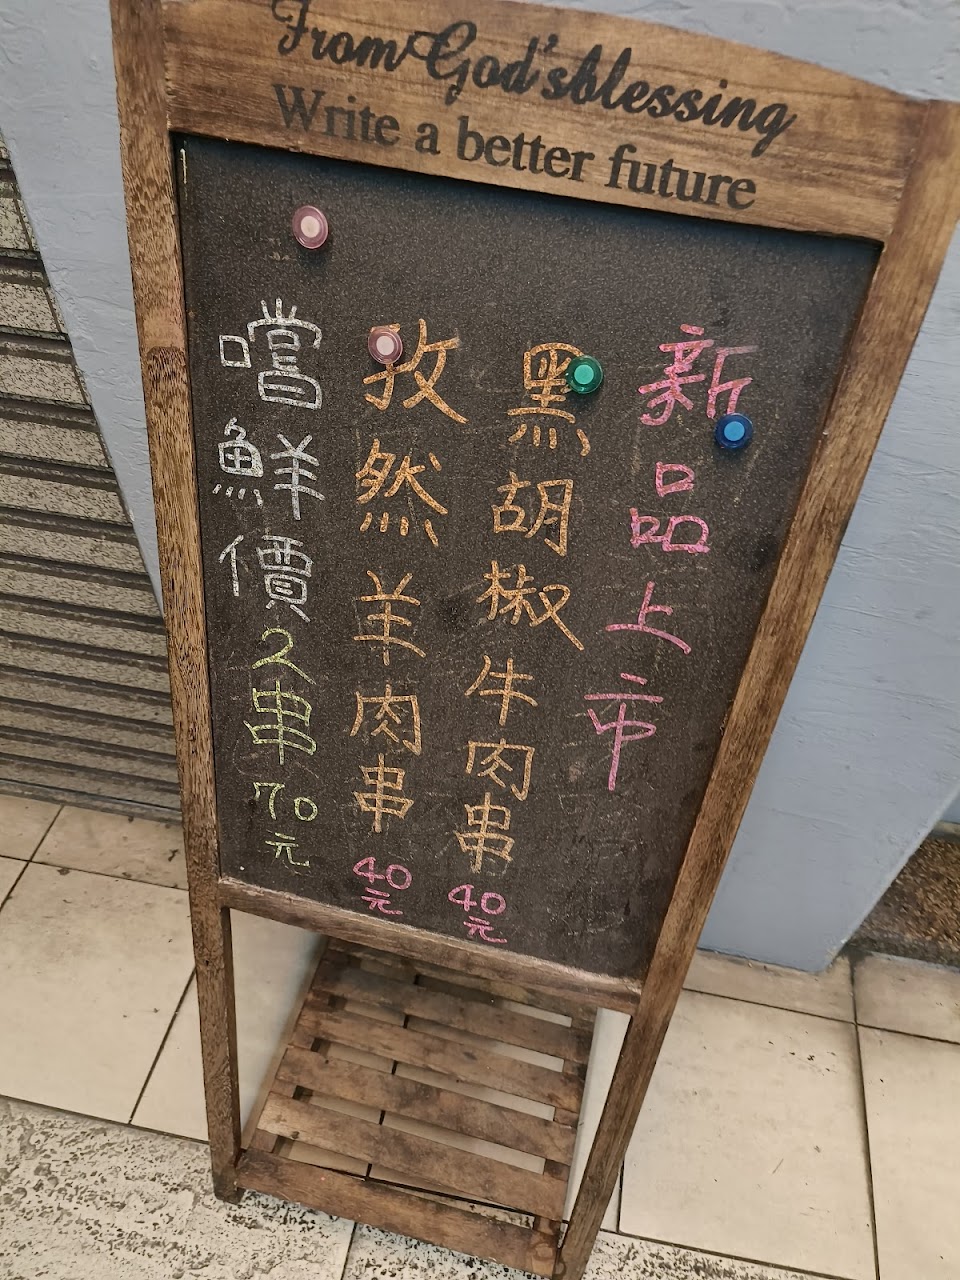 From God'sblessing
Write a better future
新品上市
黑胡椒牛肉串40元
孜然羊肉串40元
嚐鮮價2串70元